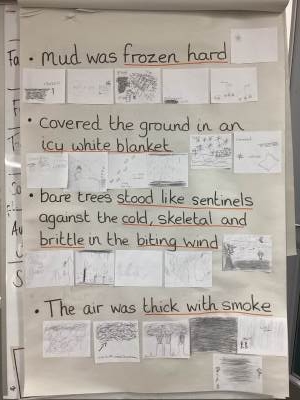 • Mud was frozen hard
• covered the ground in an
icy white blanket
• bare trees stood like sentinels
against the cold, skeletal and
brittle in the biting wind
• The air was thick with smoke